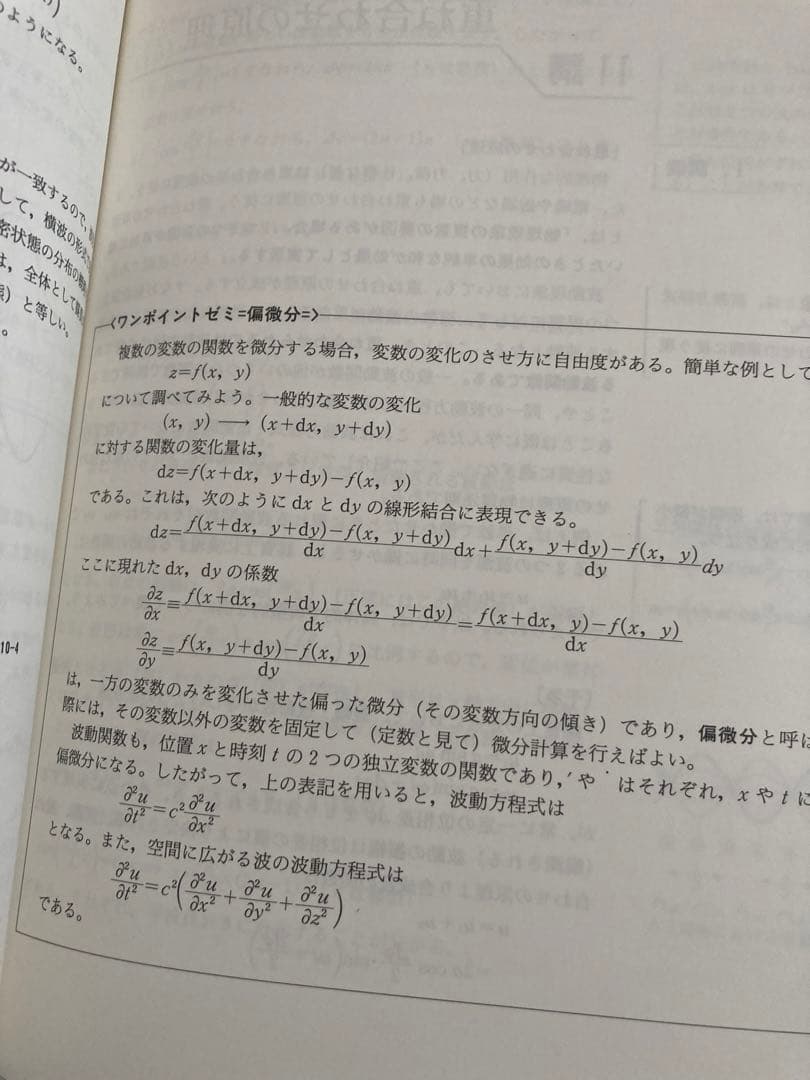 のようになる。
が一致するので,
して, 横波の形式
密状態の分布の
は, 全体として
) と等しい。
。
10-4
〈ワンポイントゼミ=偏微分=〉
複数の変数の関数を微分する場合, 変数の変化のさせ方に自由度がある。簡単な例として
z=f(x, y)
について調べてみよう。一般的な変数の変化
(x, y) ⟶ (x+dx, y+dy)
に対する関数の変化量は,
dz=f(x+dx, y+dy)−f(x, y)
である。これは, 次のように dx と dy の線形結合に表現できる。
dz=\frac{f(x+dx, y+dy)−f(x, y+dy)}{dx}dx+\frac{f(x, y+dy)−f(x, y)}{dy}dy
ここに現れた dx, dy の係数
\frac{∂z}{∂x}≡\frac{f(x+dx, y+dy)−f(x, y+dy)}{dx}=\frac{f(x+dx, y)−f(x, y)}{dx}
\frac{∂z}{∂y}≡\frac{f(x, y+dy)−f(x, y)}{dy}
は, 一方の変数のみを変化させた偏った微分 (その変数方向の傾き) であり, 偏微分と呼ば
際には, その変数以外の変数を固定して (定数と見て) 微分計算を行えばよい。
波動関数も, 位置 x と時刻 t の 2 つの独立変数の関数であり, ′ や ˙ はそれぞれ, x や t に
偏微分になる。したがって, 上の表記を用いると, 波動方程式は
\frac{∂²u}{∂t²}=c²\frac{∂²u}{∂x²}
となる。また, 空間に広がる波の波動方程式は
\frac{∂²u}{∂t²}=c²(\frac{∂²u}{∂x²}+\frac{∂²u}{∂y²}+\frac{∂²u}{∂z²})
である。